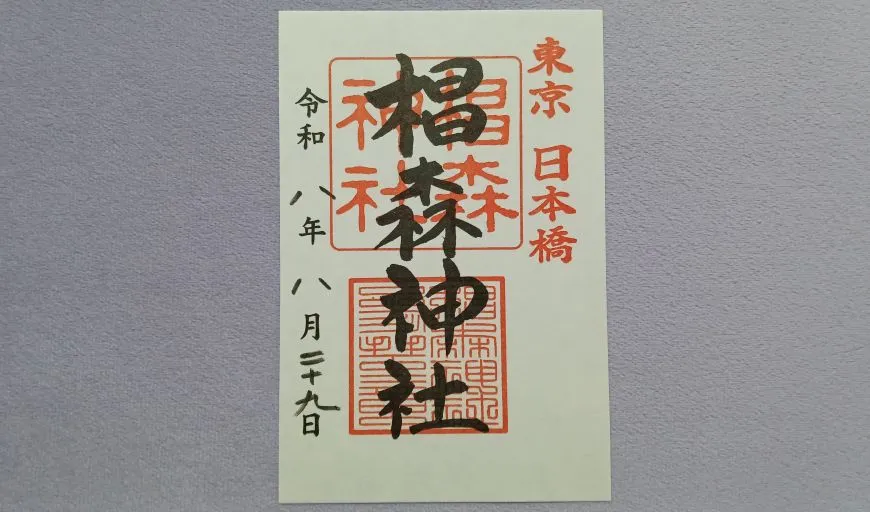 東京 日本橋
椙森神社
椙森
神社
令和 八年 八月二十九日